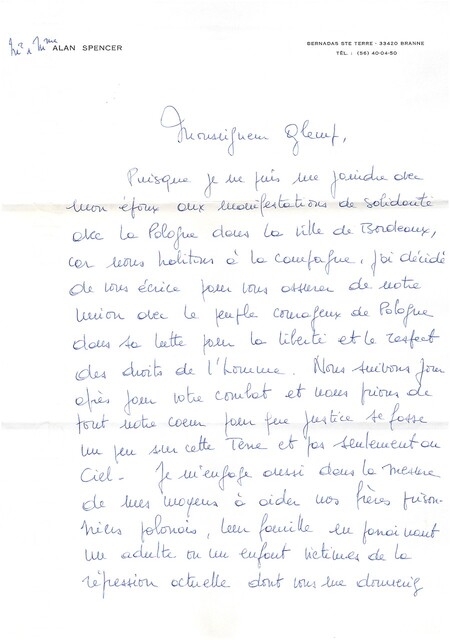 Mr & Mme ALAN SPENCER
BERNADAS STE TERRE - 33420 BRANNE
TÉL. : (56) 40-04-50
Monseigneur Glemp,
Puisque je ne puis me joindre avec
mon époux aux manifestations de solidarité
avec la Pologne dans la ville de Bordeaux,
car nous habitons à la campagne, j'ai décidé
de vous écrire pour vous assurer de notre
union avec le peuple courageux de Pologne
dans sa lutte pour la liberté et le respect
des droits de l'homme. Nous suivons jour
après jour votre combat et nous prions de
tout notre coeur pour que justice se fasse
un peu sur cette Terre et pas seulement au
Ciel - Je m'engage aussi dans la mesure
de mes moyens à aider nos frères prison-
niers polonais, leur famille en parrainant
un adulte ou un enfant victimes de la
répression actuelle dont vous me donnerez